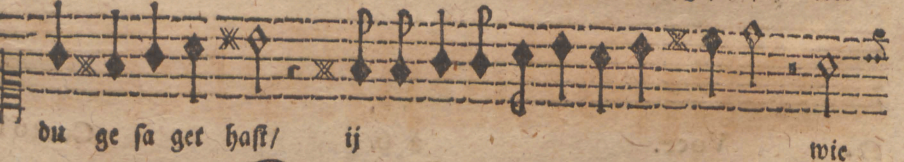 du ge ſa get haſt/ ij wie